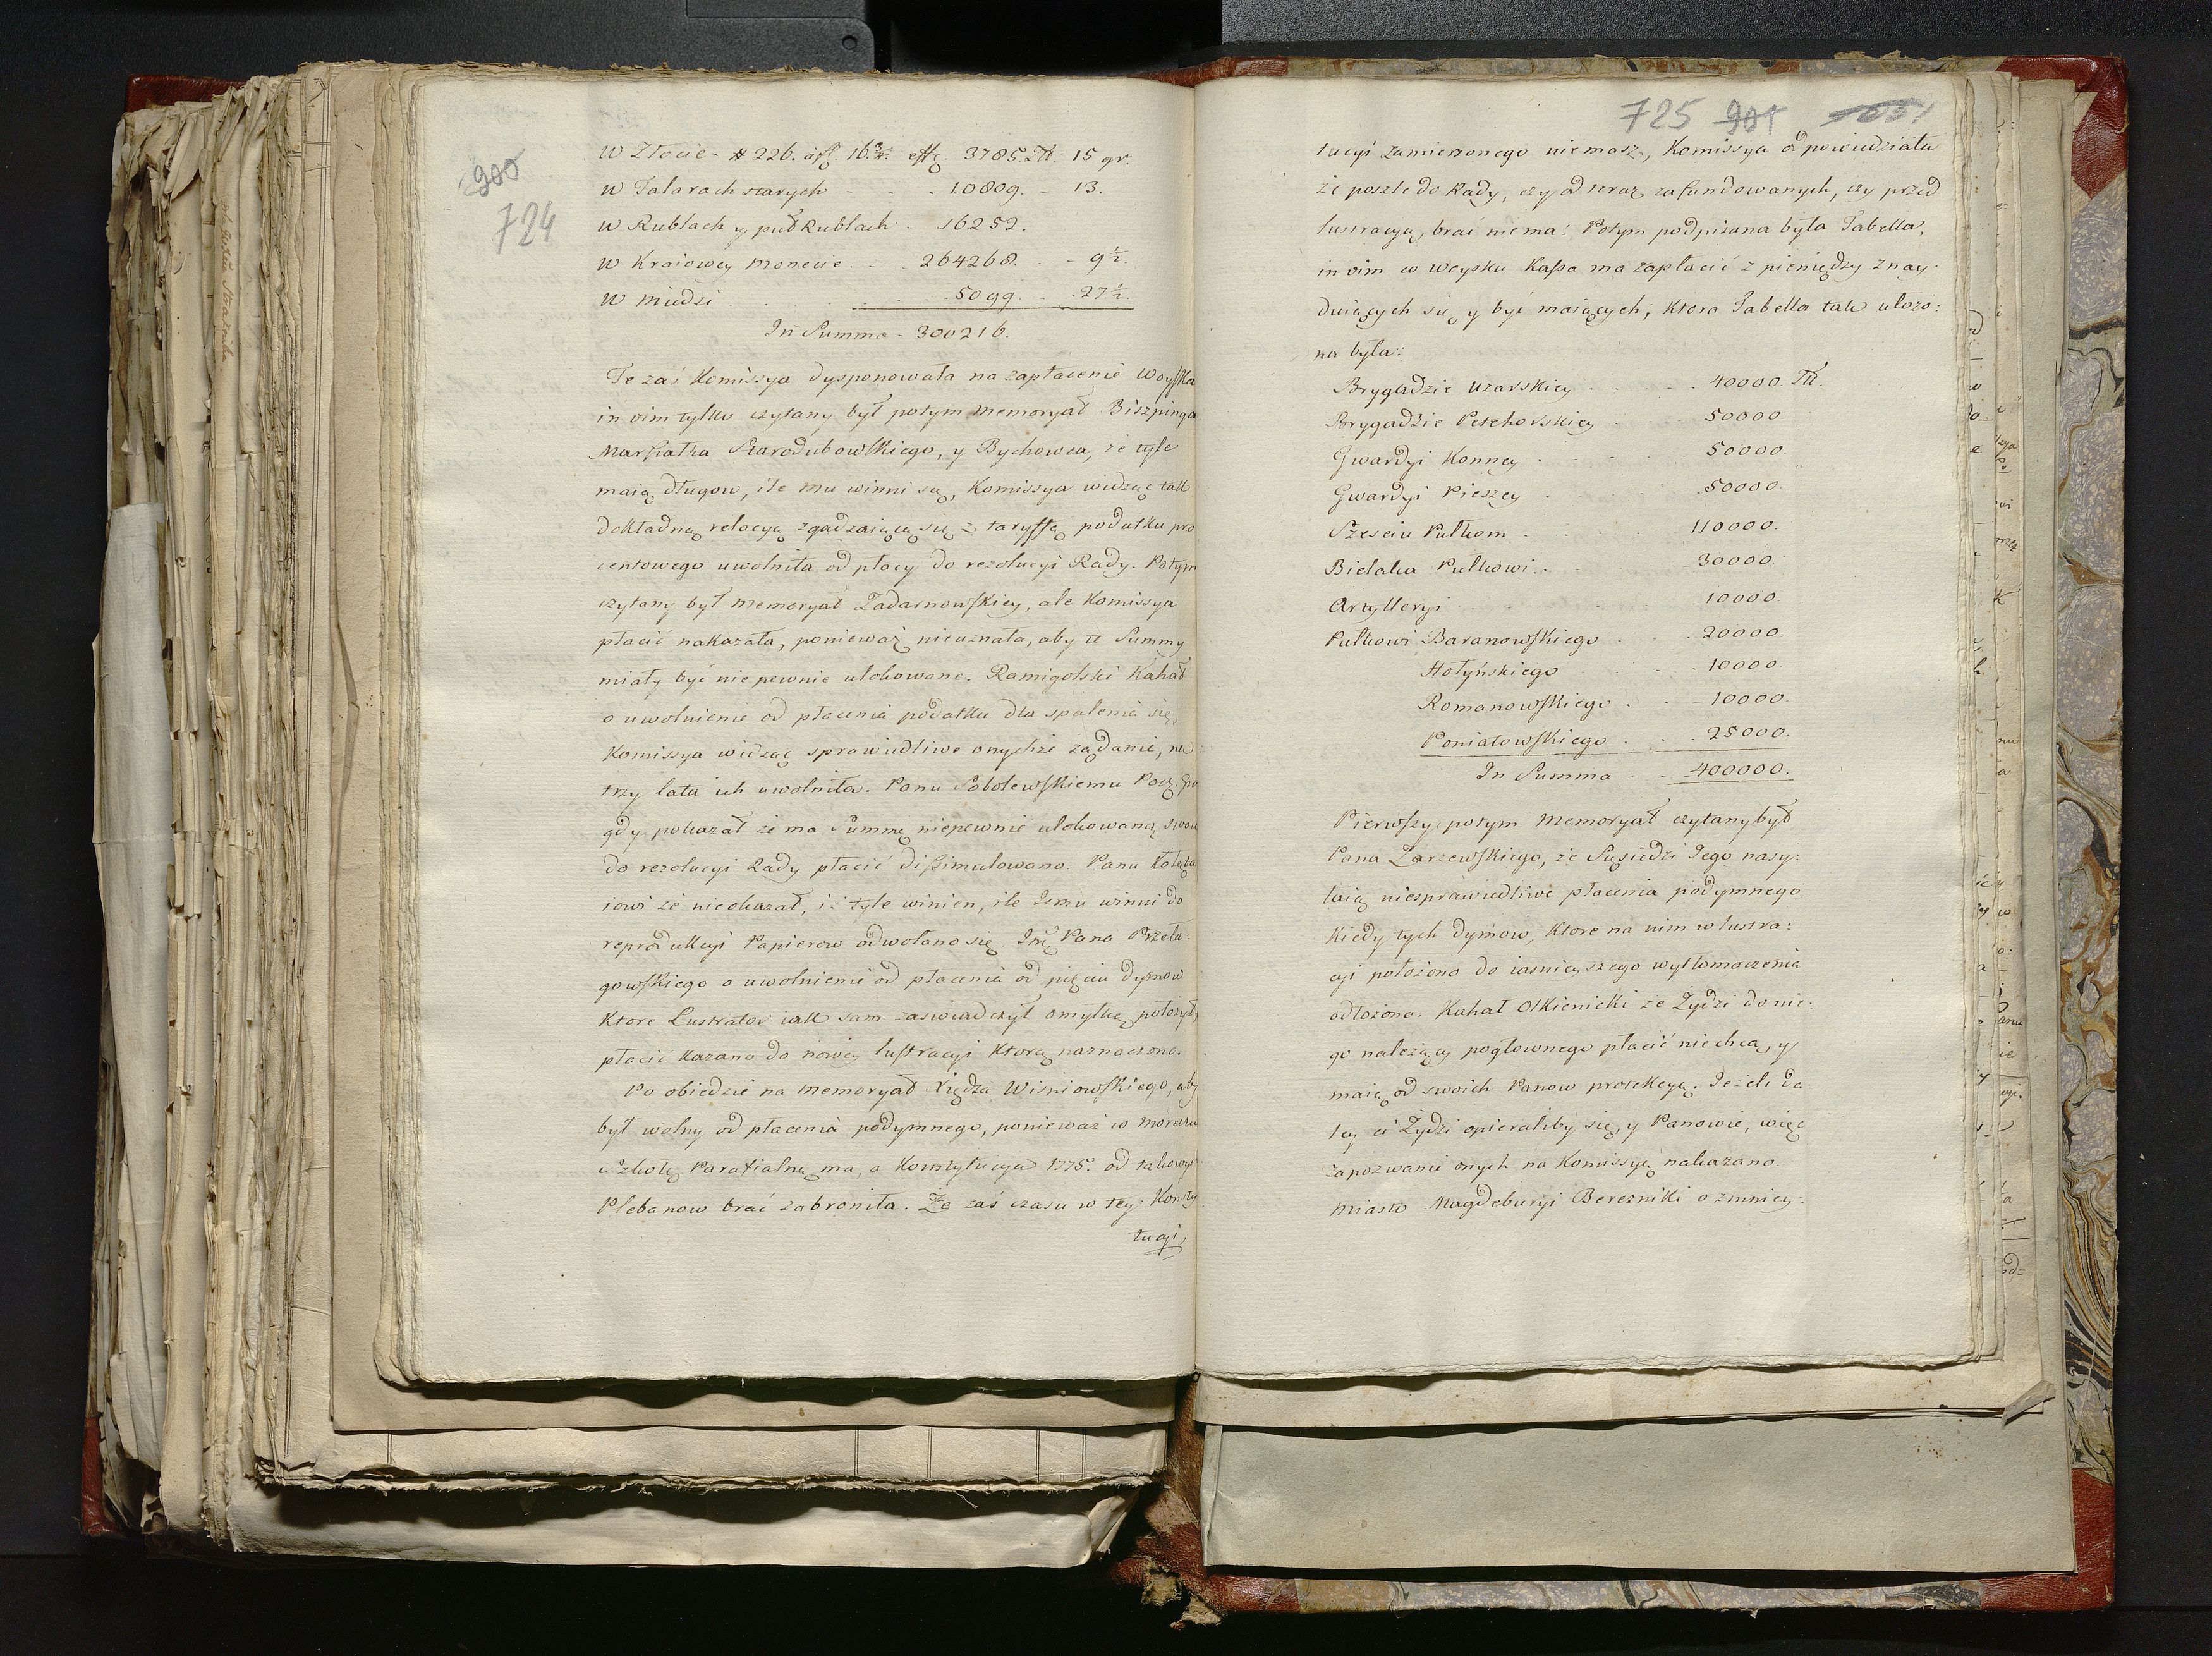 900
724
W Złocie - # 226. 16 3/4. effc. 3785 Zł. 15 gr.
w Talarach starych - - . 10809. - 13.
w Rublach y puł Rublach - 16252.
w Kraiowey Monecie . - . 264268. . - 9½.
w miedzi . . . . . 5099. . . 27½
In Summa - 300216.
Te zaś Komissya dysponowała na zapłacenie Woyska
in vim tylko czytany był potym memoryał Biszpinga
Marszałka Starodubowskiego, y Bychowca, że tyle
maią długow, ile mu winni są, Komissya widząc tak
dokładną relacyą zgadzaiącą się z taryffą podatku pro
centowego uwolniła od płacy do rezolucyi Rady. Potym
czytany był memoryał Zadarnowskiey, ale Komissya
płacić nakazała, ponieważ nieuznała, aby te Summy
miały być niepewnie ulokowane. Ramigolski Kahał
o uwolnienie od płacenia podatku dla spalenia się,
Komissya widząc sprawiedliwe onychże żądanie, na
trzy lata ich uwolniła. Panu Sobolewskiemu
gdy pokazał że ma Summę niepewnie ulokowaną swoią
do rezolucyi Rady płacić dissimulowano. Panu Kołąta
iowi że nieokazał, iż tyle winien, ile Jemu winni do
reprodukcyi Papierow odwołano się. Jmć Pana Przeła:
gowskiego o uwolnienie od płacenia od pięciu dymow
Ktore Lustrator iak sam zaświadczył omyłką położył,
płacić kazano do nowey lustracyi Ktorą naznaczono.
Po obiedzie na memoryał Xiędza Wisniowskiego, aby
był wolny od płacenia podymnego, ponieważ w
Szkołę Parafialną ma, a Konstytucya 1775. od takowych
Plebanow brać zabroniła. Że zaś czasu w tey Konsty
tucyi,
725 901
tucyi zamierzonego niemasz, Komissya odpowiedziała
że poszle do Rady, czy od teraz zafundowanych, czy przed
lustracyą, brać niema: Potym podpisana była Tabella,
in vim co woysku Kassa ma zapłacić z pieniędzy znay-
duiących się, y być maiących, Ktora Tabella tak ułożo:
na była:
Brygadzie Uzarskiey . . . . . 40000. Zł.
Brygadzie Petyhorskiey . . . . 50000
Gwardyi Konney . . . . 50000.
Gwardyi Pieszey . . . . 50000.
Sześciu Pułkom . . . . . 110000.
Bielaka Pułkowi . . . . . 30000.
Artylleryi . . . . 10000
Pułkowi Baranowskiego . . . 20000.
Hołyńskiego . . . 10000.
Romanowskiego . . - 10000.
Poniatowskiego . . . 25000.
In Summa - - 400000.
Pierwszy potym Memoryał czytany był
Pana Zarzewskiego, że Sąsiedzi Jego nasy:
łaią niesprawiedliwe płacenia podymnego
Kiedy tych dymow, Ktore na nim w lustra:
cyi położono do iasnieyszego wytłomaczenia
odłożono. Kahał Olkienicki że Żydzi do nie-
go należący pogłownego płacić niechcą, y
maią od swoich Panow protekcyą. Jeżeli da
ley ci Żydzi opieraliby się, y Panowie, więc
zapozwanie onych na Komissyą nakazano.
Miasto Magdeburyi Berezniki o zmniey-